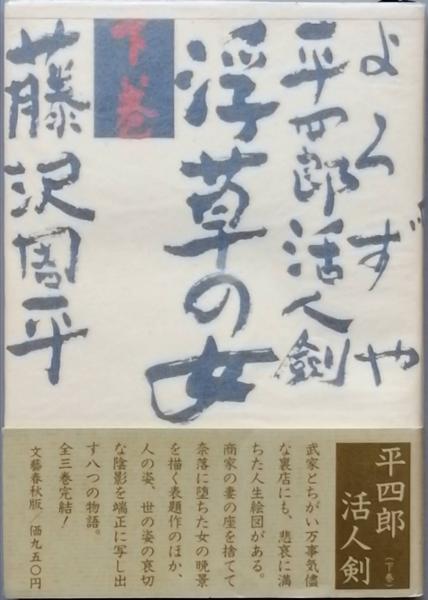 よろずや
平四郎活人剣
浮草の女
下巻
藤沢周平
平四郎
活人剣
(下巻)
武家とちがい万事気儘
な裏店にも、悲哀に満
ちた人生絵図がある。
商家の妻の座を捨てて
奈落に堕ちた女の晩景
を描く表題作のほか、
人の姿、世の姿の哀切
な陰影を端正に写し出
す八つの物語。
全三巻完結!
文藝春秋版/価九五〇円